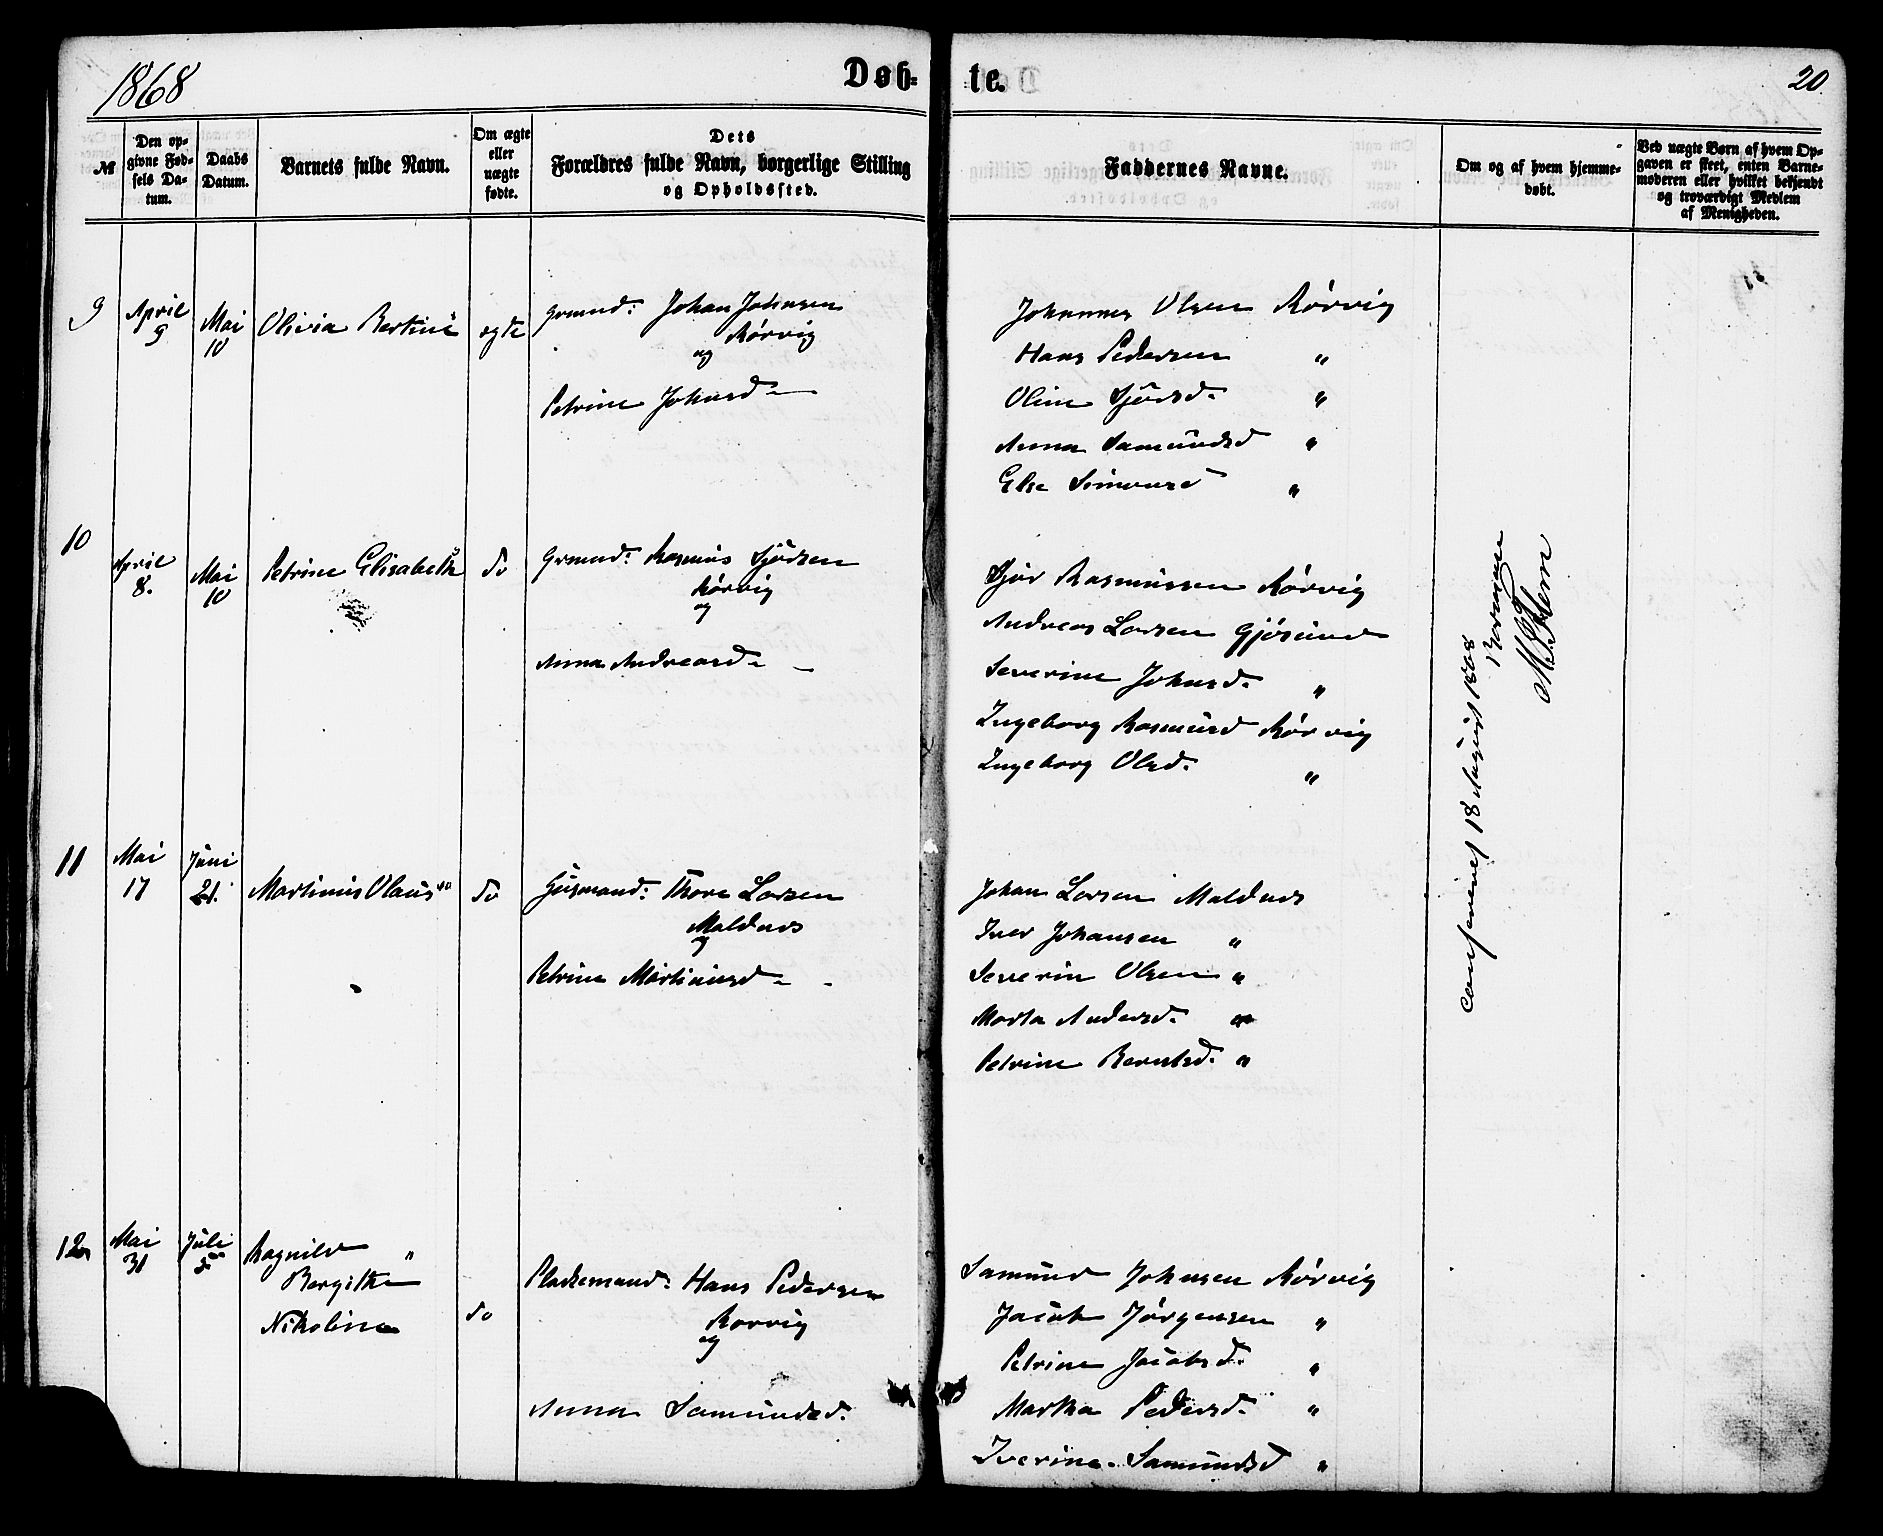 1868
Døb-
te.
20
№
Den op-
givne Fød-
sels Da-
tum.
Daabs
Datum.
Barnets fulde Navn.
Om ægte
eller
uægte
fødte.
Dets
Forældres fulde Navn, borgerlige Stilling
og Opholdssted.
Faddernes Navne.
Om og af hvem hjemme-
døbt.
Ved uægte Børn af hvem Op-
gaven er skeet, enten Barne-
moderen eller hvilket bekjendt
og troværdigt Medlem
af Menigheden.
9
April
9
Mai
10
Olivia Bertine
egte
Grmnd: Johan Johnsen
Rørvig
og
Petrine Johnsd -
Johannes Olsen Rørvig
Hans Pedersen "
Oline Sjørsd. "
Anna Samundsd "
Else Simonsd "
10
April
8.
Mai
10
Petrine Elisabeth
do
Grmnd: Rasmus Sjørsen
Rørvig
og
Anna Andreasd - -
Sjur Rasmussen Rørvig
Andreas Larsen Gjøsund
Severine Johnsd. "
Ingeborg Rasmusd Rørvig
Ingeborg Olsd. "
11
Mai
17
Juni
21.
Martinus Olaus
do
Huusmand: Thore Larsen
Maldnes
og
Petrine Martinusd - -
Johan Larsen Maldnes
Iver Johansen "
Severin Olsen "
Marta Andersd. "
Petrine Berntsd. "
12
Mai
31
Juli
5
Ragnild "
Bergithe
Nikoline
do
Pladsemand: Hans Pedersen
Rørvig
og
Anna Samundsd.
Samund Johnsen Rørvig
Jacob Jørgensen "
Petrine Jacobsd. "
Martha Pedersd. "
Iverine Samundsd "
Confereret 18 August 1868